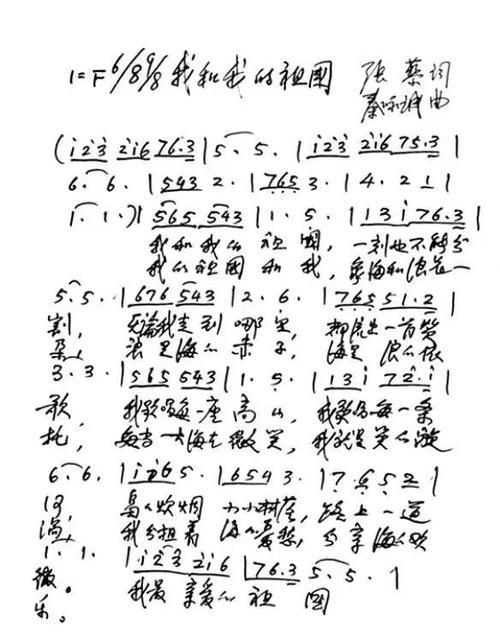 1=F 6/8 9/8 我和我的祖国 张藜词
秦咏诚曲
(i̇2̇3̇ 2̇i̇6 76.3 | 5. 5. | i̇2̇3̇ 2̇i̇6 75.3 |
6. 6. | 543 2. | 765 3. | 4. 2 1 |
1. 1.) | 565 543 | 1. 5. | 1 3 i̇ 76.3 |
我和我的祖国,一刻也不能分
我的祖国和我,象海和浪花一
5. 5. | 676 543 | 2. 6. | 765 51.2 |
割,无论我走到哪里,都流出一首赞
朵,浪是海的赤子,海是浪的依
3. 3. | 565 543 | 1. 5. | 13i̇ 72̇.i̇ |
歌,我歌唱每一座高山,我歌唱每一条
托,每当大海在微笑,我就是笑的漩
6. 6. | i̇765. | 6543. | 7.652 |
河,袅袅炊烟 小小村落,路上一道
涡,我分担着 海的忧愁,分享海的欢
1. 1. | i̇2̇3̇ 2̇i̇6 | 76.3 5. 5. 1
辙。我最亲爱的祖国
乐。